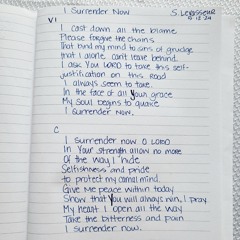 I Surrender Now
S. Levasseur
6-12-24
V1
I cast down all the blame
Please forgive the chains
That bind my mind to sins of grudge
that I alone can't leave behind.
I ask You LORD to take this self-
justification on this road
I always seem to take.
In the face of all Your grace
My soul begins to quake
I surrender Now.
C
I surrender now O LORD
In Your strength allow no more
Of the way I hide
Selfishness and pride
to protect my carnal mind.
Give Me peace within today
Show that You will always win, I pray
My heart I open all the way
Take the bitterness and pain
I surrender now.